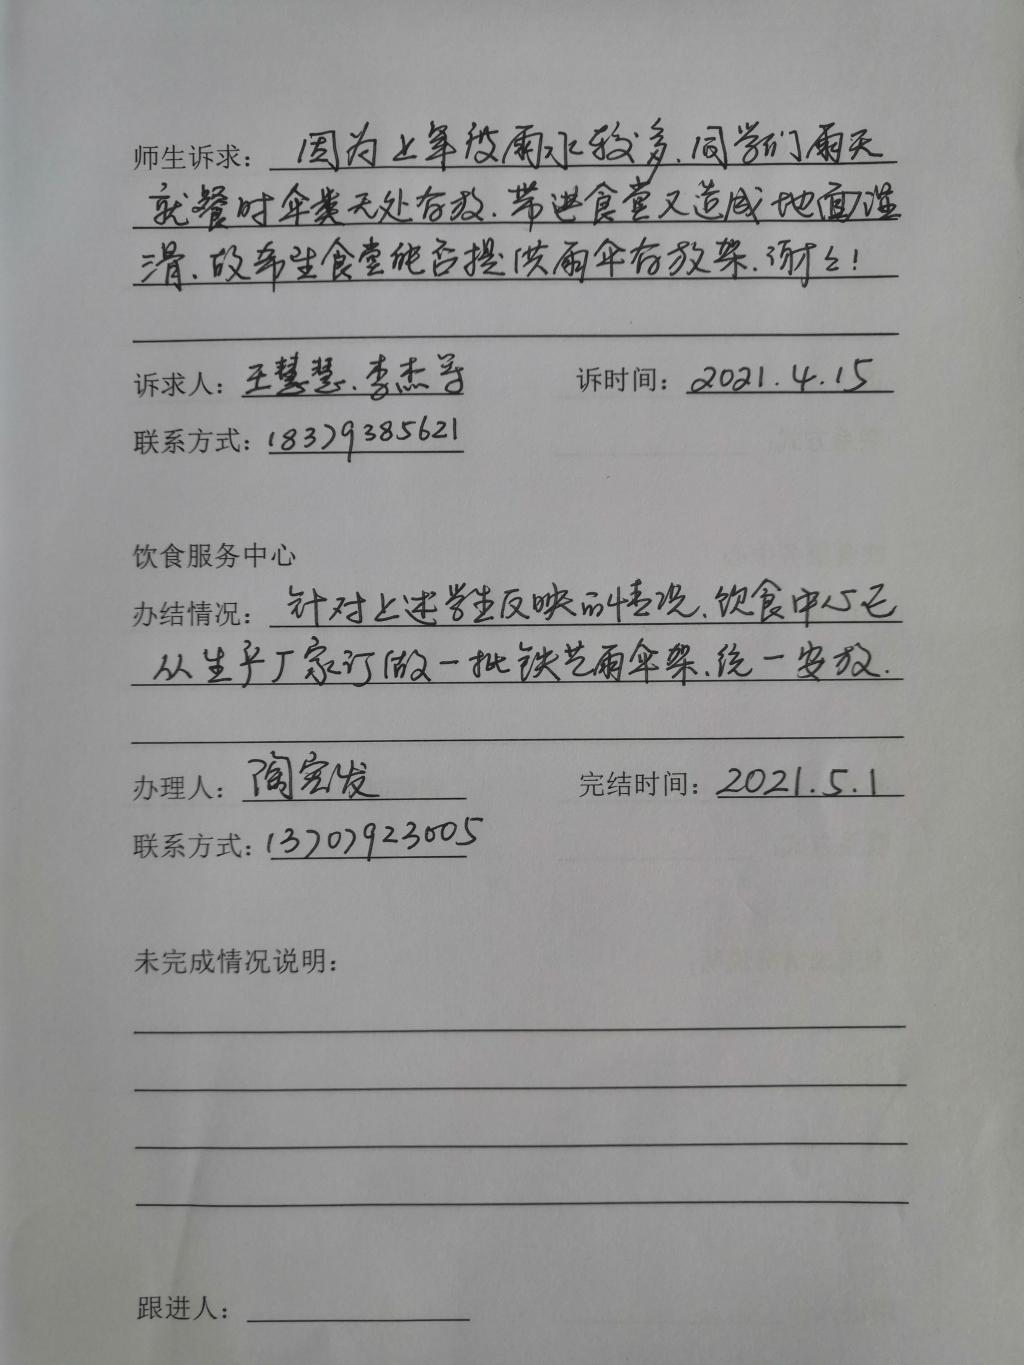 师生诉求：因为上年段雨水较多、同学们雨天
就餐时伞类无处存放、带进食堂又造成地面湿
滑、故希望食堂能否提供雨伞存放架、谢谢！
诉求人：王慧慧、李杰等
诉时间：2021.4.15
联系方式：18379385621
饮食服务中心
办结情况：针对上述学生反映的情况、饮食中心已
从生产厂家订做一批铁艺雨伞架、统一安放.
办理人：陶宏发
完结时间：2021.5.1
联系方式：13707923005
未完成情况说明：
跟进人：